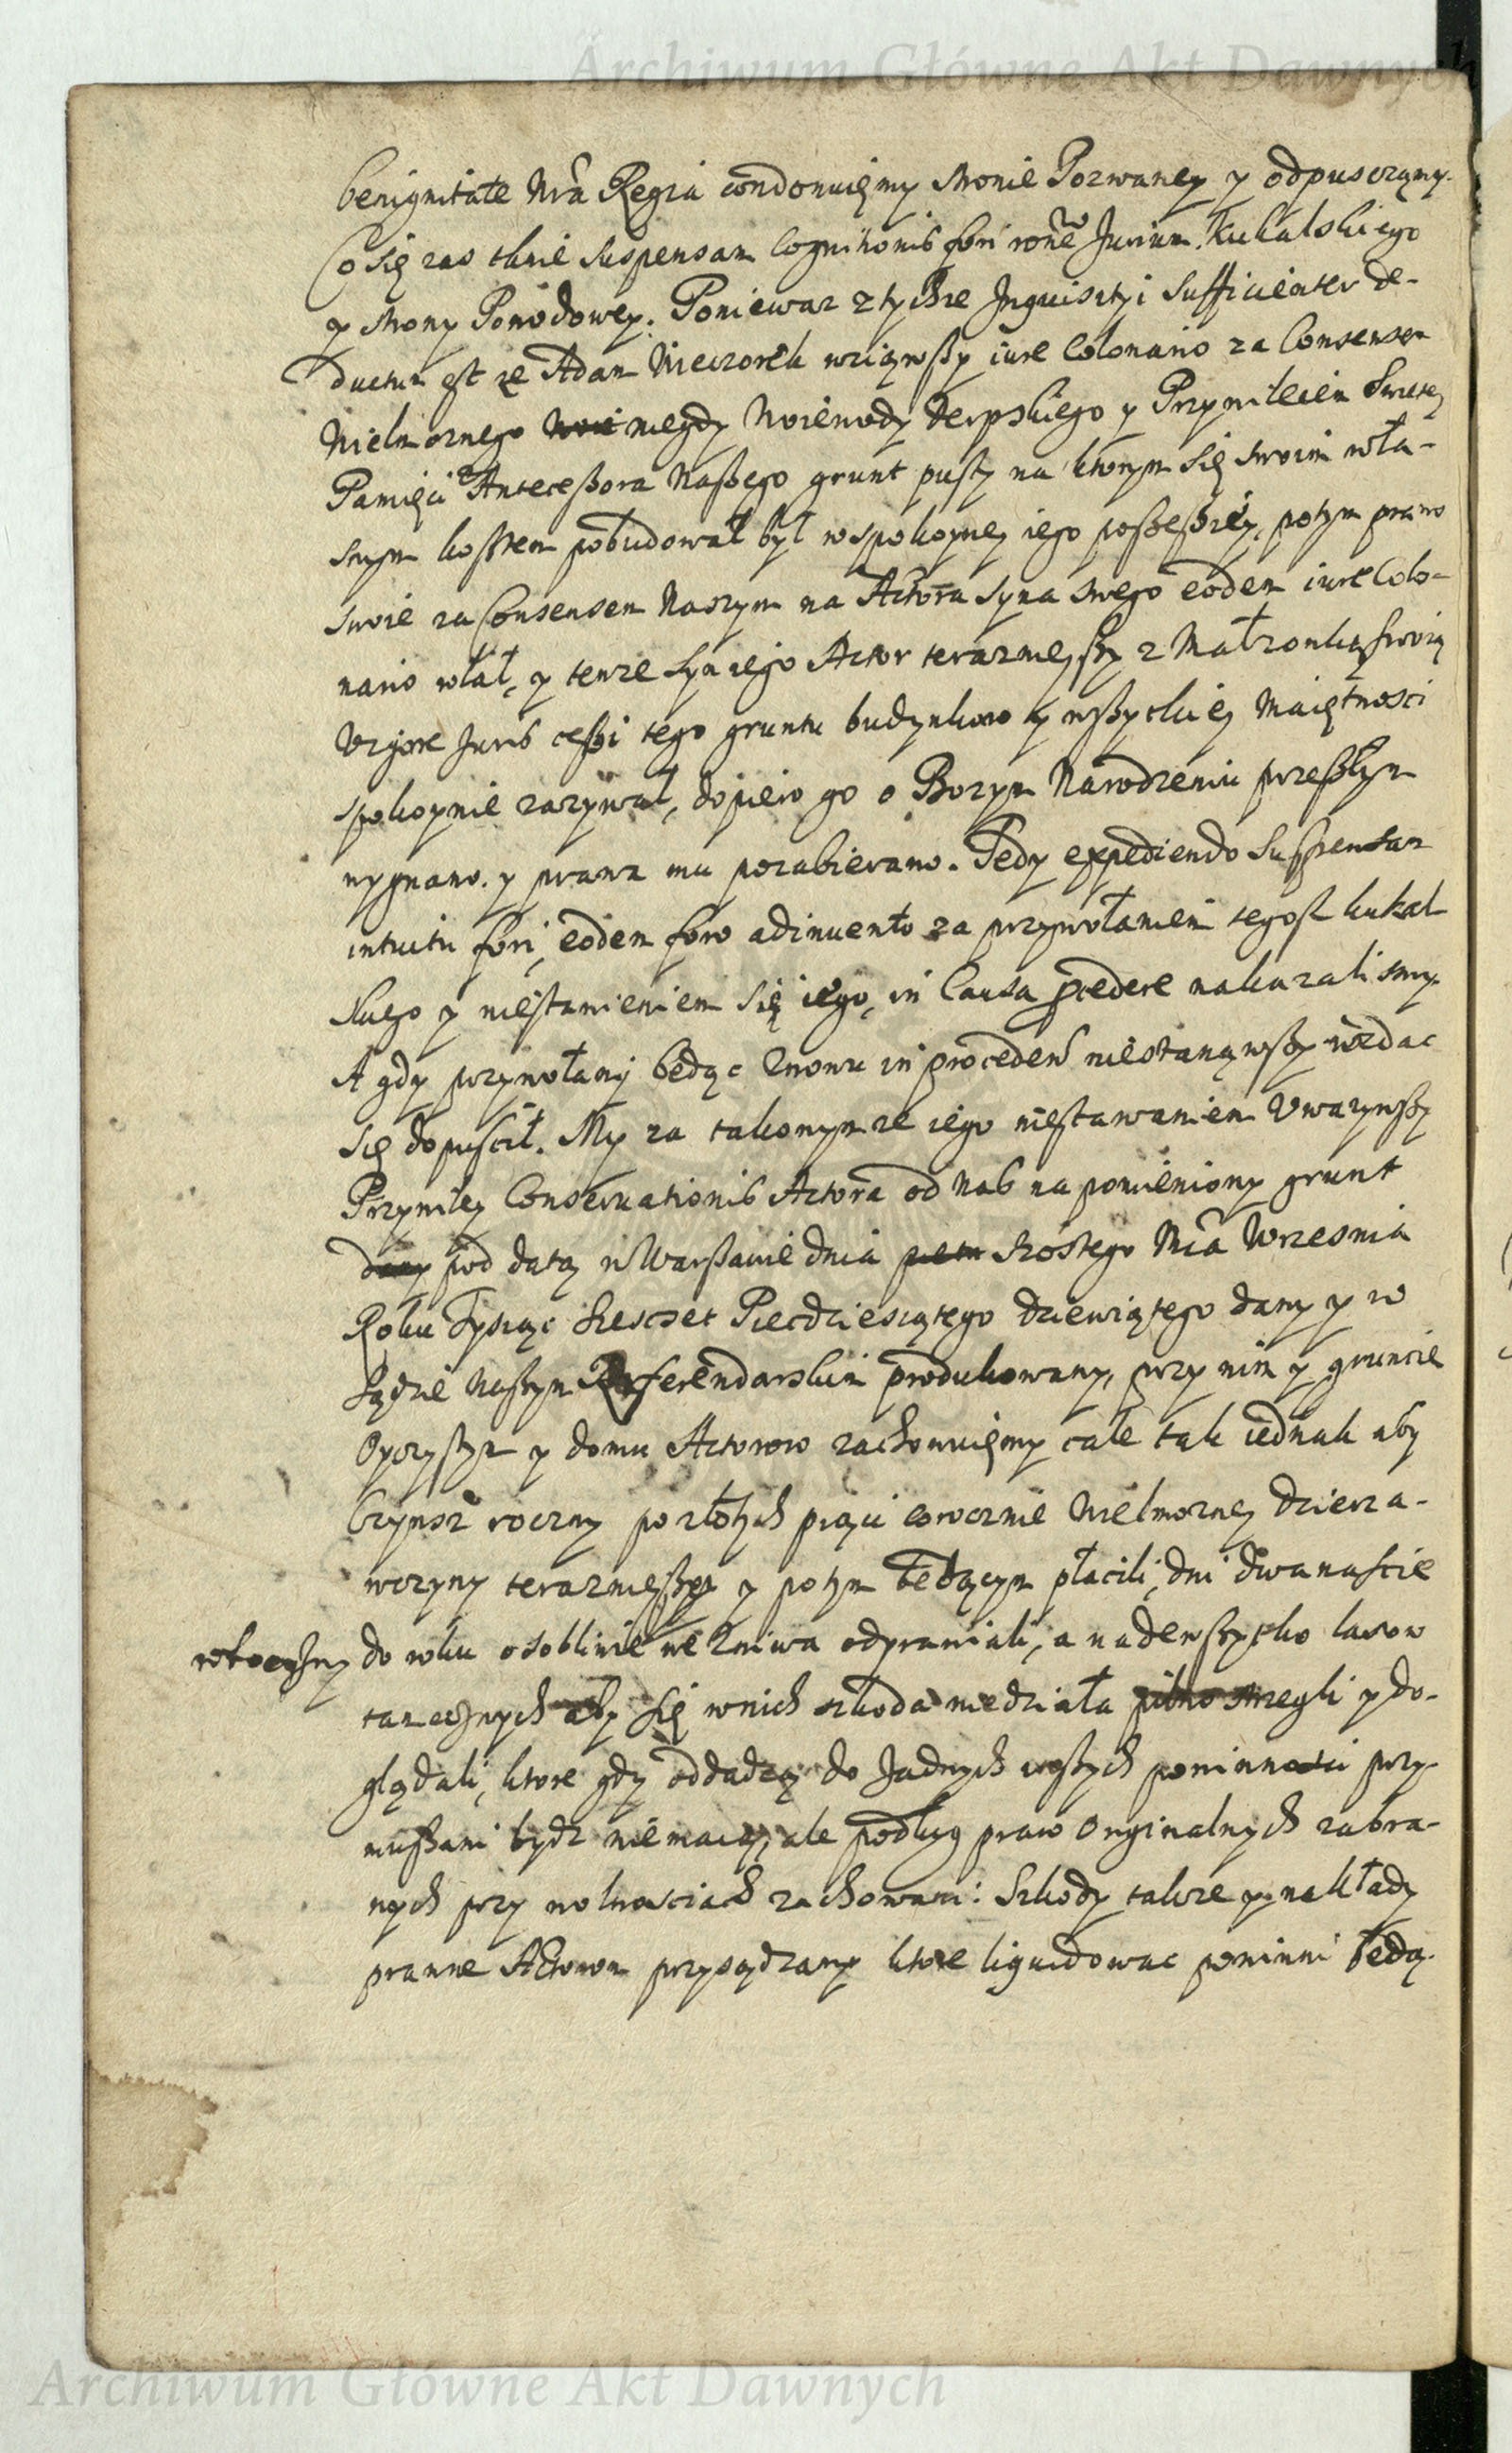 Archiwum Główne Akt Dawnych
benignitate Nrã Regia condonuięmy stronie Pozwaney y odpusczamy.
Co się zas tknie suspensam Cognitionis fori rõne Jurium Kukalskiego
y strony Powodowey. Poniewaz z tychze Inquisityi sufficienter de-
ductum est ze Adam Wieczorek wziąwszy iure Colonario za Consensem
Wielmoznego niegdy Woiewody Derpskiego y Przywileiem Swietey
Pamięci Antecessora Naszego grunt pusty na ktorym się swoim wła-
snym kosztem pobudował był w spokoyney iego possessiey, potym prawo
swoie za Consensem Naszym na Actora syna swego eodem iure Colo-
nario wlał, y tenze syn iego Actor terazniejszy z Małzonką swoią
Vigore Juris cessi tego gruntu budynkow y wszystkiey Maiętnosci
spokoynie zazywał, dopiero go o Bozym Narodzeniu przeszłym
wygnano. y prawa mu pozabierano. Tedy expediendo suspensam
intuitu fori, eodem foro adinuento za przywołaniem tegosz Kukal
skiego y niestawieniem się iego, in Causa p̃cedere nakazalismy.
A gdy przywołany będąc znowu in procedeñ niestanąwszy wzdac
się dopuscił. My za takowymze iego niestawaniem Vwazywszy
Przywiley Conservationis Actora od Nas na pomieniony grunt
dany pod datą w Warszawie dnia szostego Mcã Wrzesnia
Roku Tysiąc Szescset Piecdziesiątego dziewiątego dany y w
Sądzie Naszym Referendarskim produkowany, przy nim y gruncie
Oyczystym y domu Actorow zachowuięmy cale tak iednak aby
Czynsz roczny po złotych pięci corocznie Wielmozney dzierza-
wczyny terazniejszey y potym będącym płacili, dni dwanascie
do roku osobliwie we zniwa odprawiali, a nadewszytko lasow
tamecznych aby się w nich szkoda niedziała pilno strzegli y do-
glądali, ktore gdy oddadzą do Jadnych inszych powinnosci przy-
muszani bydz niemaią, ale podług praw Orginalnych zabra-
nych przy wolnosciach zachowani: Szkody takze y nakłady
prawne Actorom przysądzamy ktore liquidowac powinni będą.
Archiwum Główne Akt Dawnych